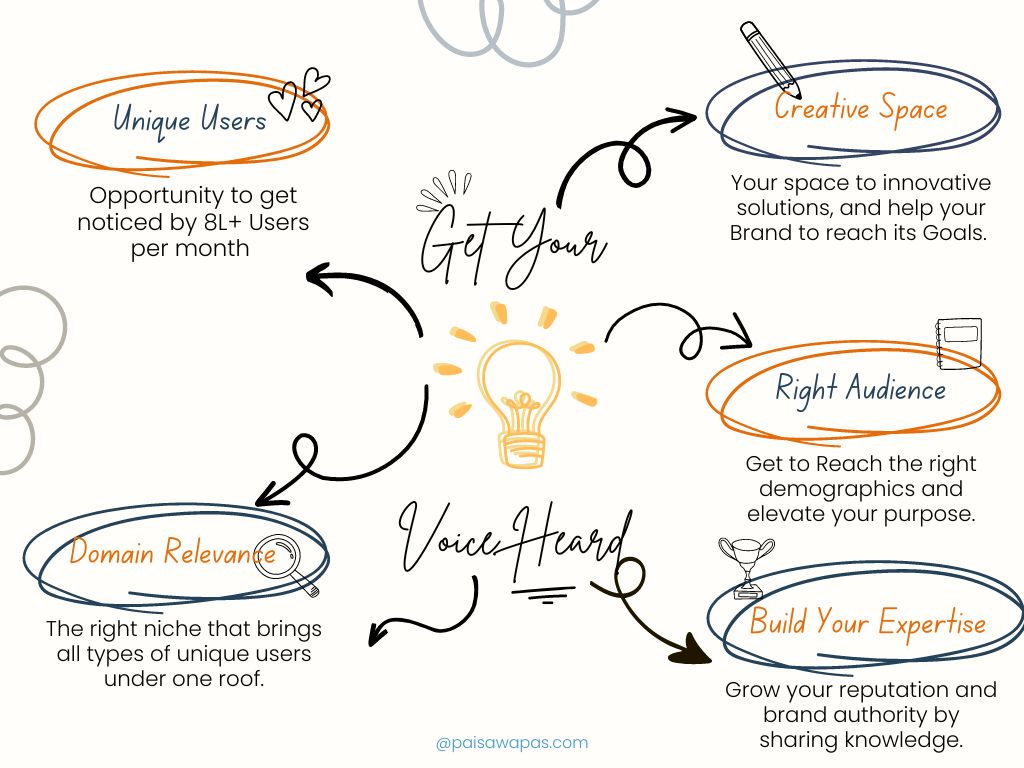 Unique Users
Opportunity to get
noticed by 8L+ Users
per month
Creative Space
Your space to innovative
solutions, and help your
Brand to reach its Goals.
Get Your
Right Audience
Get to Reach the right
demographics and
elevate your purpose.
Voice Heard
Domain Relevance
The right niche that brings
all types of unique users
under one roof.
Build Your Expertise
Grow your reputation and
brand authority by
sharing knowledge.
@paisawapas.com